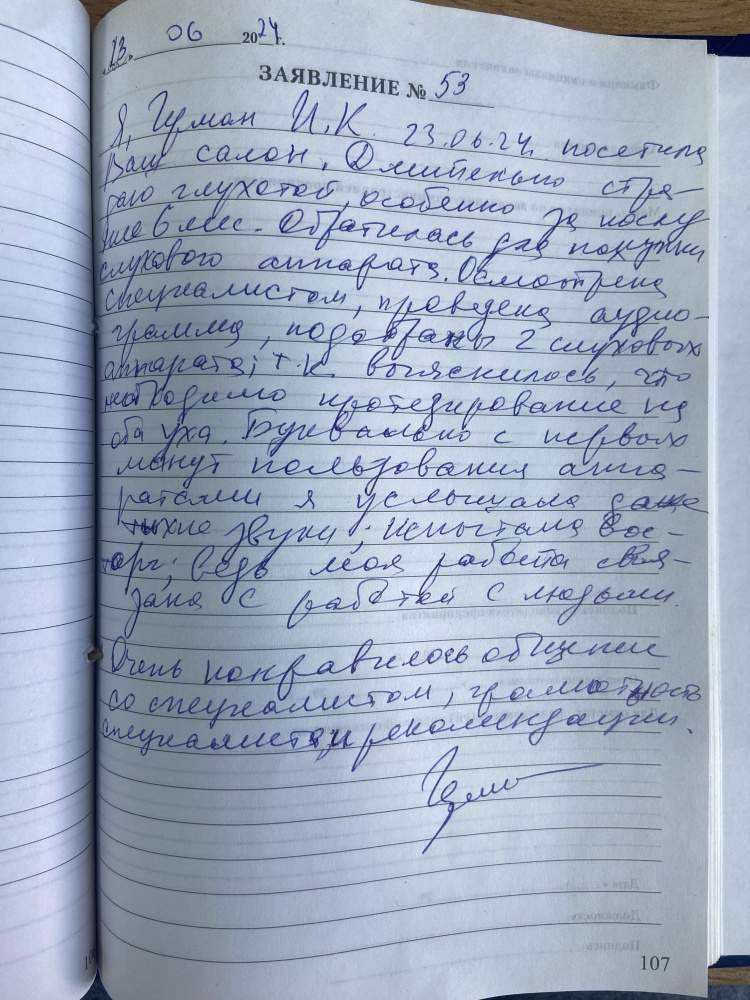 "13" 06 2024 г.
ЗАЯВЛЕНИЕ № 53
Я, Гуман И.К. 23.06.24. посетила
Ваш салон. Длительно стра-
даю глухотой, особенно за послед
ние 6 мес. Обратилась для покупки
слухового аппарата. Осмотрена
специалистом, проведена аудио-
грамма, подобраны 2 слуховых
аппарата, т.к. выяснилось, что
необходимо протезирование на
оба уха. Буквально с первых
минут пользования аппа-
ратами я услышала даже
тихие звуки, испытала вос-
торг, ведь моя работа свя-
зана с работой с людьми.
Очень понравилось общение
со специалистом, грамотность
специалиста и рекомендации.
107